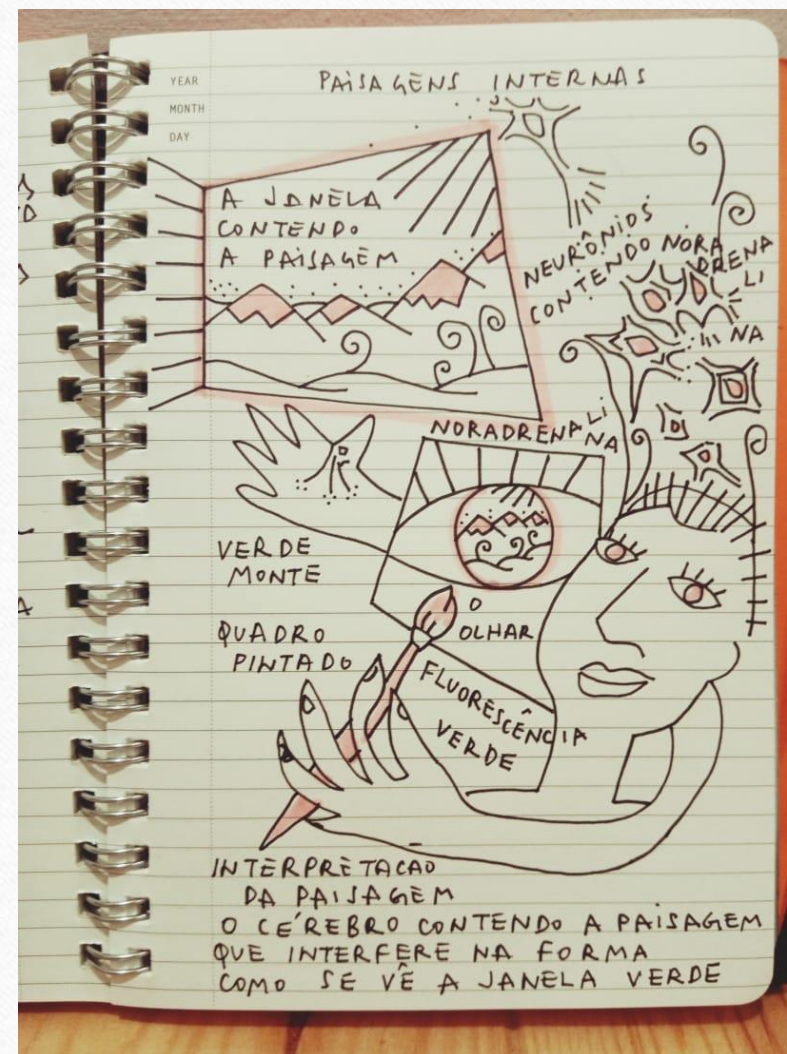 YEAR
MONTH
DAY
PAISAGENS INTERNAS
A JANELA
CONTENDO
A PAISAGEM
NEURÔNIOS
CONTENDO NORA
DRENA
LI
NA
NORADRENA
LI
NA
VERDE
MONTE
O
OLHAR
QUADRO
PINTADO
FLUORESCÊNCIA
VERDE
INTERPRETACAO
DA PAISAGEM
O CÉREBRO CONTENDO A PAISAGEM
QUE INTERFERE NA FORMA
COMO SE VÊ A JANELA VERDE